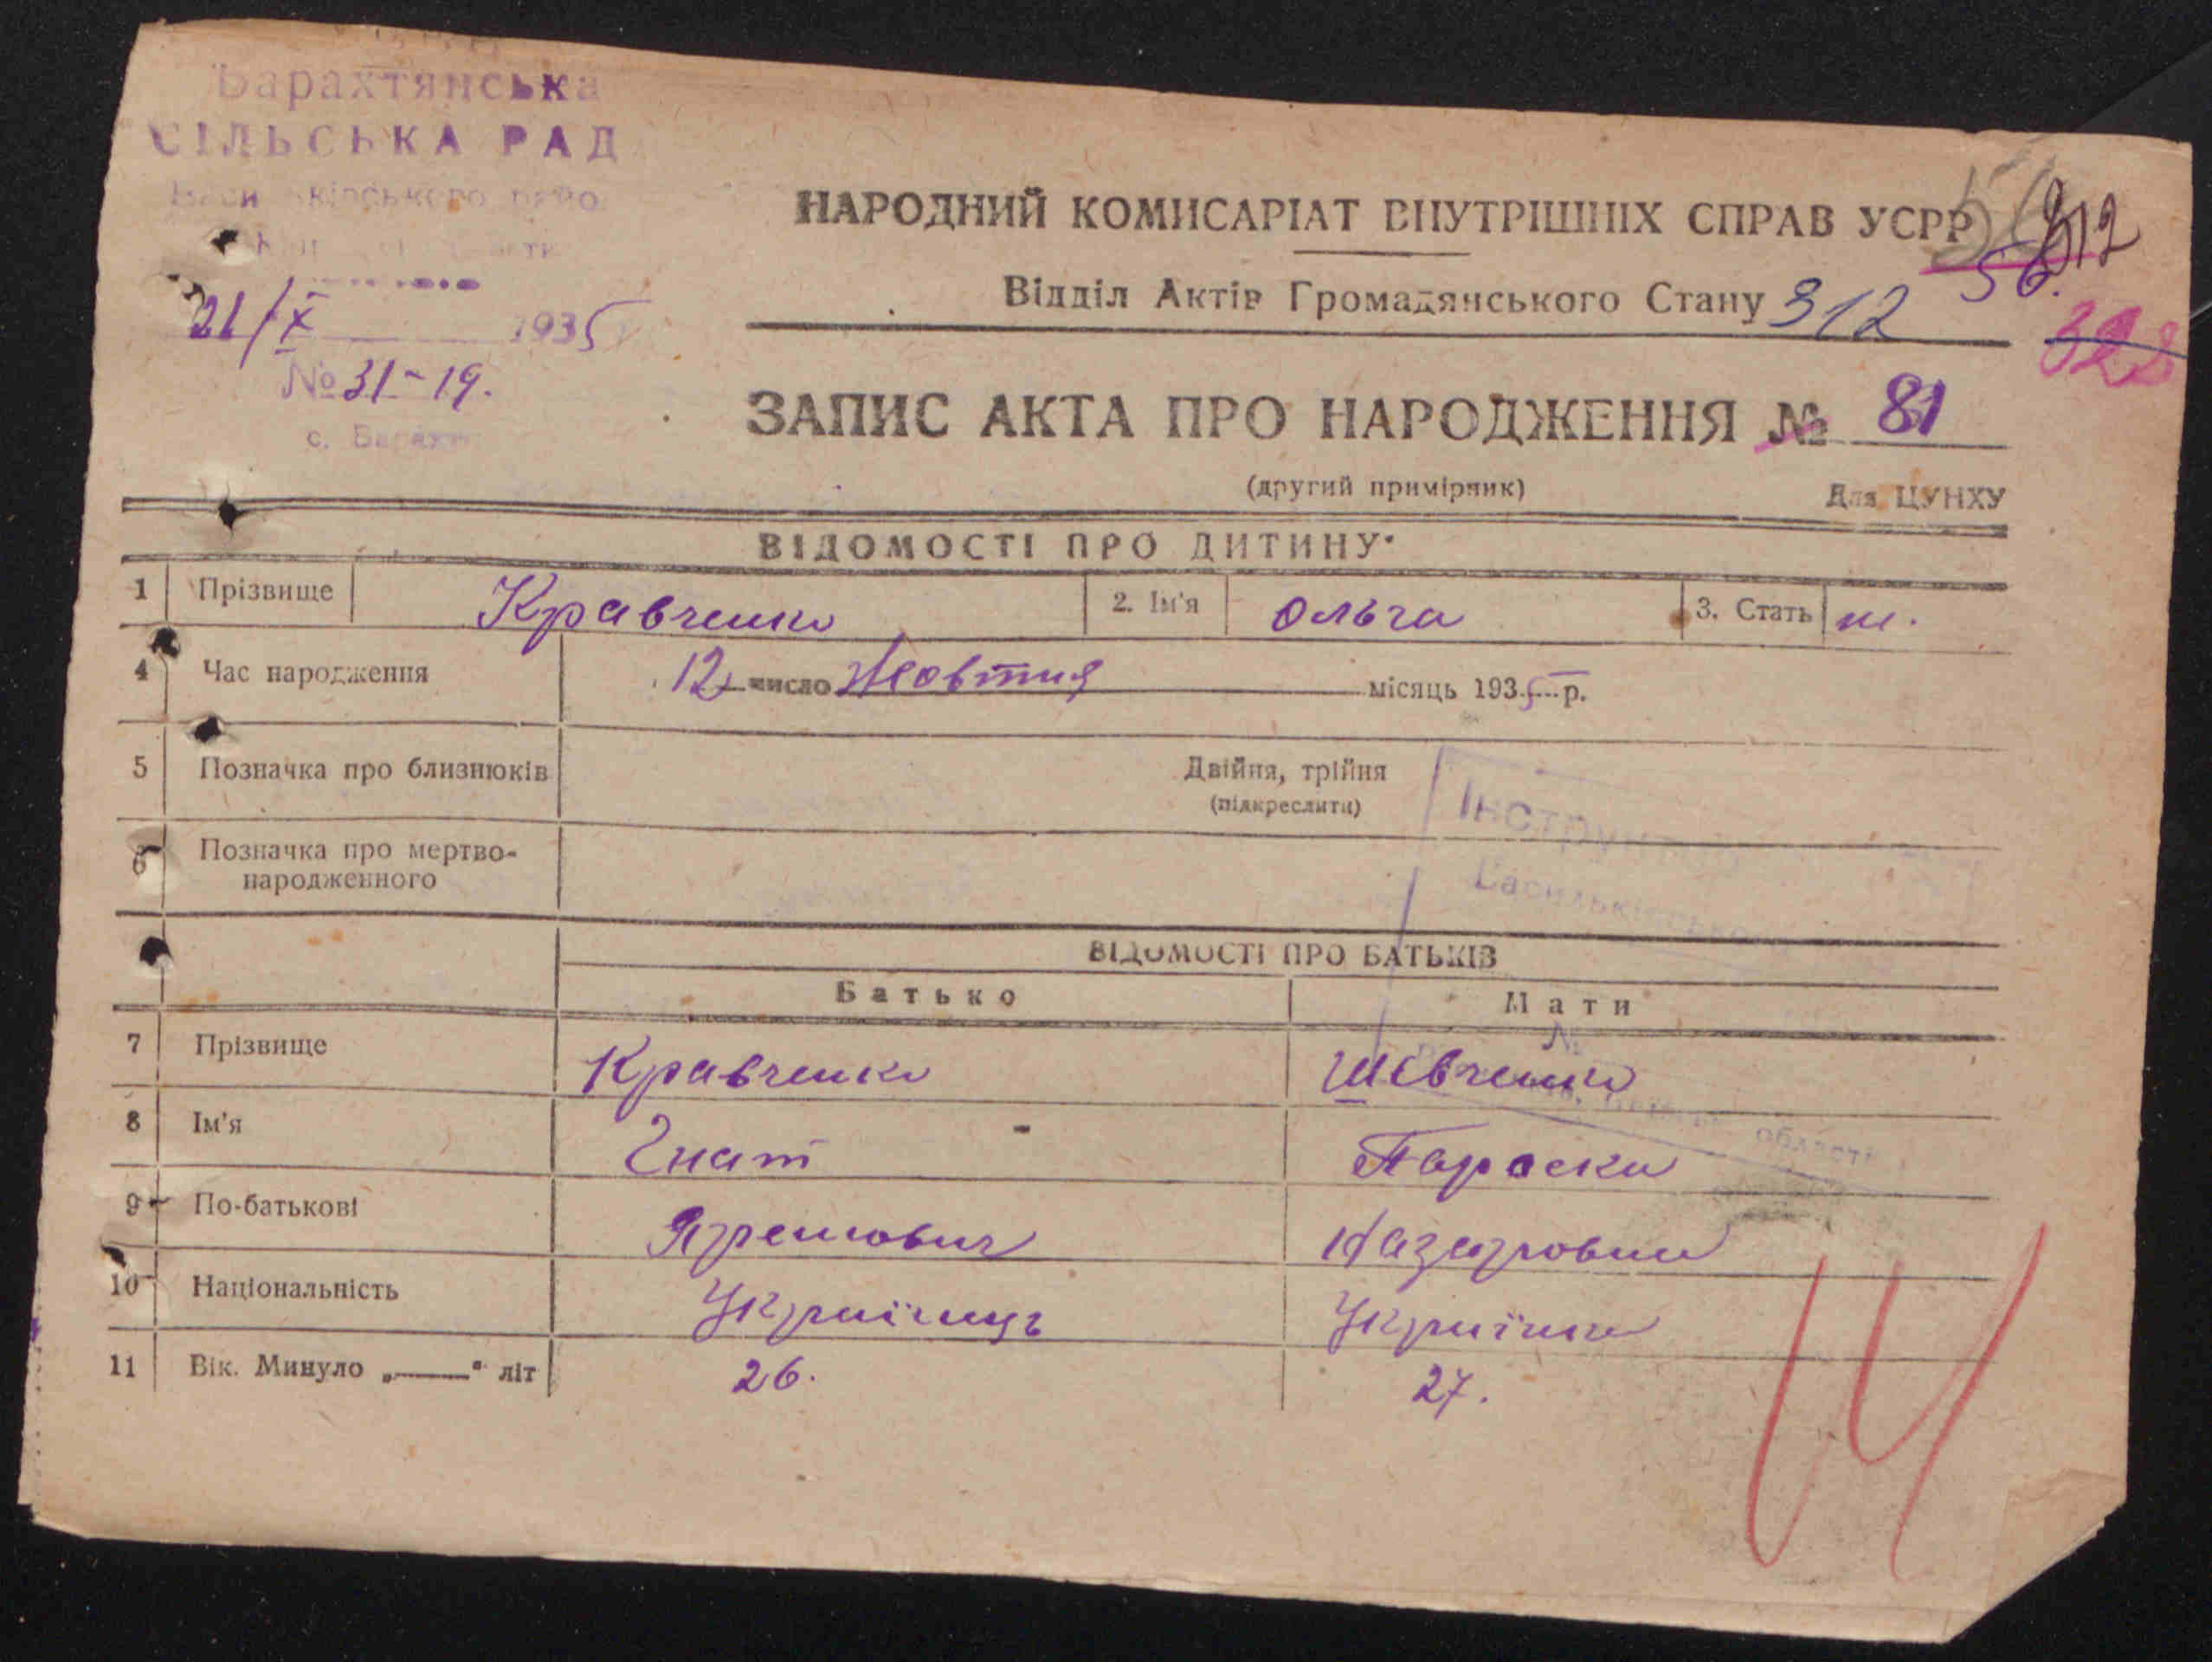 Барахтянська
СІЛЬСЬКА РАД
21/X 1935
№ 31-19.
с. Барахти
НАРОДНИЙ КОМИСАРІАТ ВНУТРІШНІХ СПРАВ УСРР
56. 312
Відділ Актів Громадянського Стану 312
ЗАПИС АКТА ПРО НАРОДЖЕННЯ № 81
(другий примірник) Для ЦУНХУ
ВІДОМОСТІ ПРО ДИТИНУ
1 Прізвище Кравченко 2. Ім'я Ольга 3. Стать ж.
4 Час народження 12 число Жовтня місяць 1935 р.
5 Позначка про близнюків Двійня, трійня
(підкреслити)
6 Позначка про мертво-
народженного
ВІДОМОСТІ ПРО БАТЬКІВ
Батько Мати
7 Прізвище Кравченко Шевченко
8 Ім'я Гнат Параска
9 По-батькові Яремович Назаровна
10 Національність Українць Українка
11 Вік. Минуло „——" літ 26. 27.